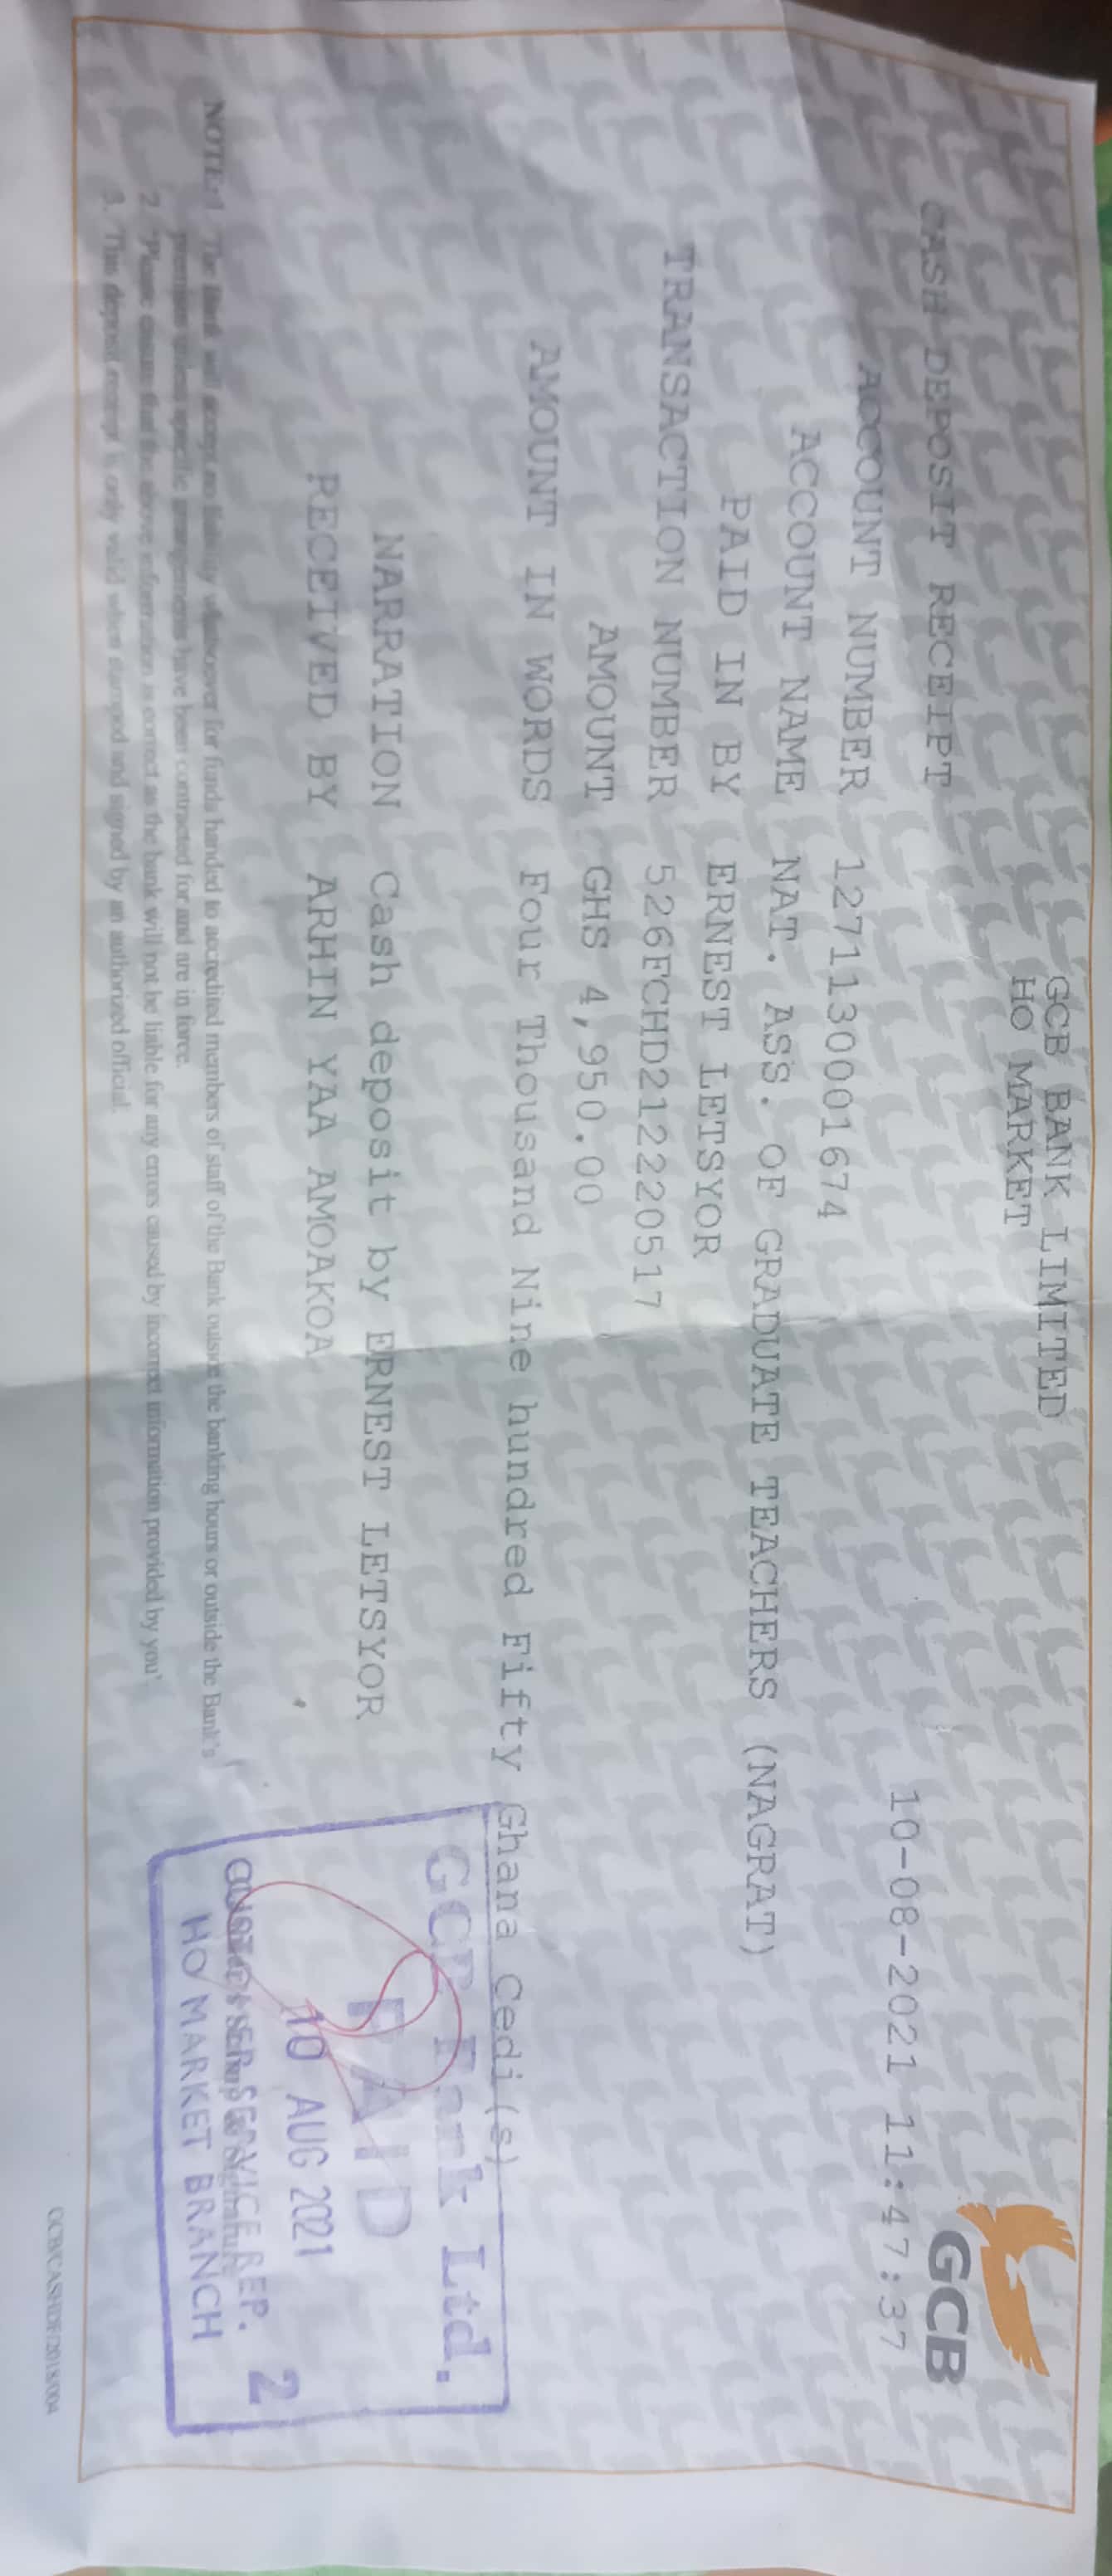 GCB BANK LIMITED
HO MARKET
GCB
CASH DEPOSIT RECEIPT
10-08-2021 11:47:37
ACCOUNT NUMBER 1271130001674
ACCOUNT NAME NAT. ASS. OF GRADUATE TEACHERS (NAGRAT)
PAID IN BY ERNEST LETSYOR
TRANSACTION NUMBER 526FCHD212220517
AMOUNT GHS 4,950.00
AMOUNT IN WORDS Four Thousand Nine hundred Fifty Ghana Cedi(s)
NARRATION Cash deposit by ERNEST LETSYOR
RECEIVED BY ARHIN YAA AMOAKOA
GCB Bank Ltd.
PAID
10 AUG 2021
SERVICE REP. 2
HO MARKET BRANCH
NOTE: 1. The Bank will accept no liability whatsoever for funds handed to accredited members of staff of the Bank outside the banking hours or outside the Bank's
premises unless specific arrangements have been contracted for and are in force.
2. 'Please ensure that the above information is correct as the bank will not be liable for any errors caused by incorrect information provided by you'.
3. This deposit receipt is only valid when stamped and signed by an authorized official.
GCB/CASHDE/2018/004